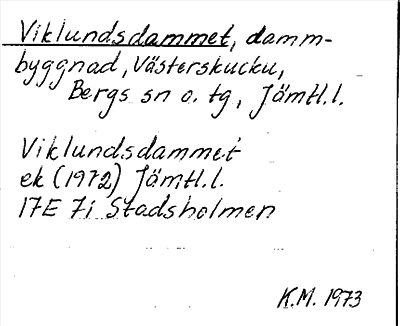 Viklundsdammet, damm-
byggnad, Västerskucku,
Bergs sn o. tg, Jämtl.l.
Viklundsdammet
ek (1972) Jämtl.l.
17E 7i Stadsholmen
K.M. 1973